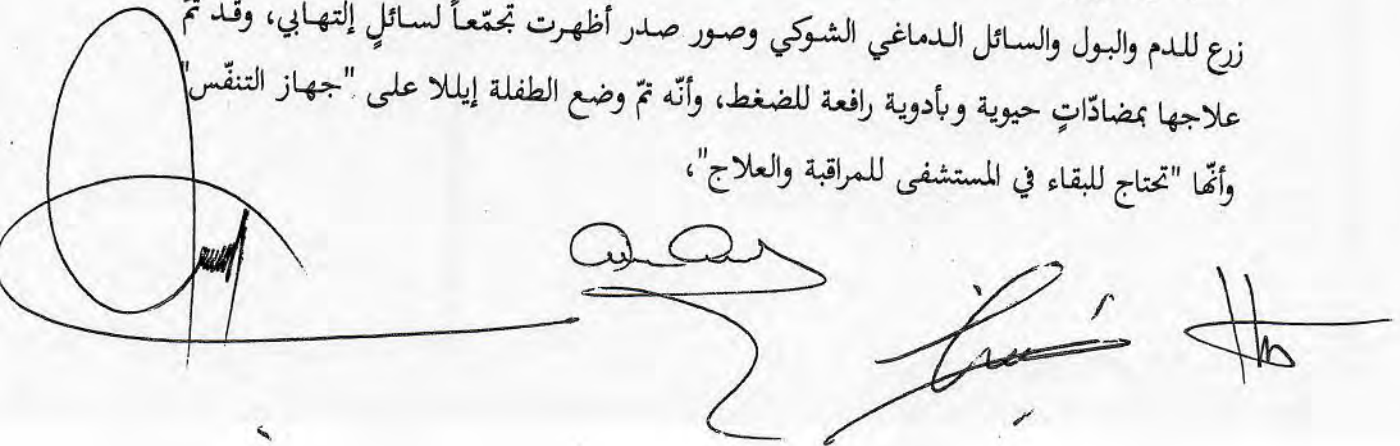 زرع للدم والبول والسائل الدماغي الشوكي وصور صدر أظهرت تجمّعاً لسائلٍ إلتهابي، وقد تمّ
علاجها بمضادّاتٍ حيوية وبأدوية رافعة للضغط، وأنّه تمّ وضع الطفلة إيللا على "جهاز التنفّس"
وأنّها "تحتاج للبقاء في المستشفى للمراقبة والعلاج"،